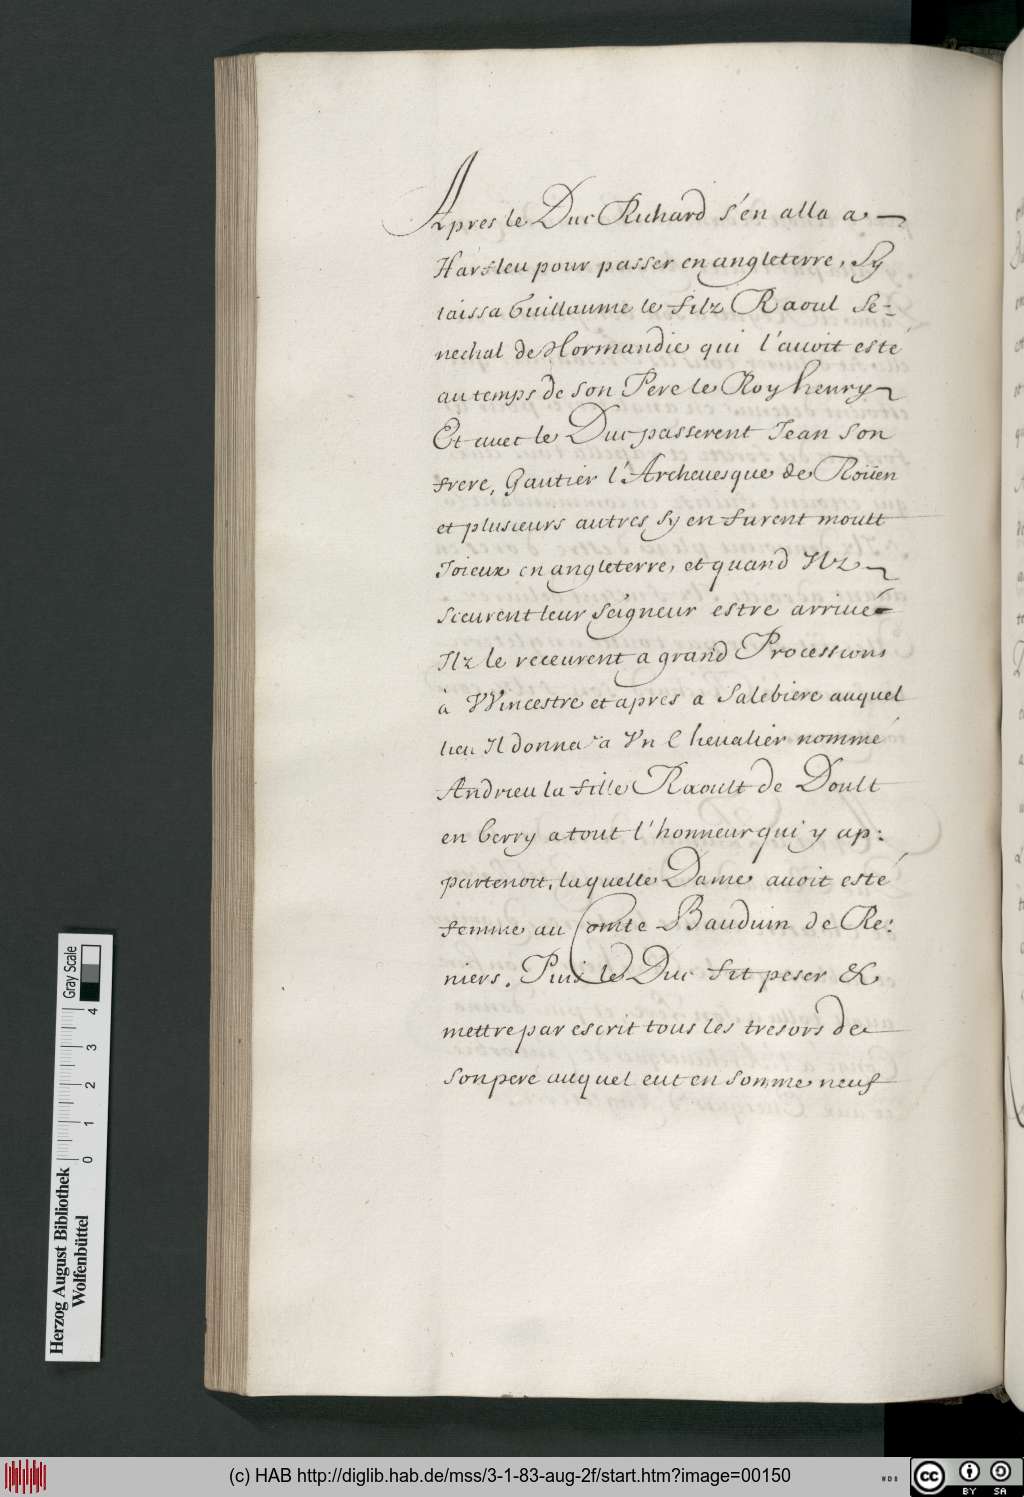 Apres le Duc Richard s'en alla a
Harfleu pour passer en angleterre, Sy
laissa Guillaume le filz Raoul Se-
nechal de Normandie qui l'auoit esté
au temps de son Pere le Roy henry
Et auec le Duc passerent Jean son
frere, Gautier l'Archeuesque de Roüen
et plusieurs autres, sy en furent moult
Joieux en angleterre, et quand Ilz
sceurent leur seigneur estre arriué
Ilz le receurent a grand Processions
à Wincestre et apres a Salebiere auquel
lieu Il donna a Vn Chevalier nommé
Andrieu la fille Raoult de Doult
en berry a tout l'honneur qui y ap:
partenoit, laquelle Dame auoit esté
femme au Comte Bauduin de Re:
niers. Puis le Duc fit peser &
mettre par escrit tous les tresors de
son pere auquel eut en somme neuf
Herzog August Bibliothek
Wolfenbüttel
0 1 2 3 4
Gray Scale
(c) HAB http://diglib.hab.de/mss/3-1-83-aug-2f/start.htm?image=00150
cc BY SA